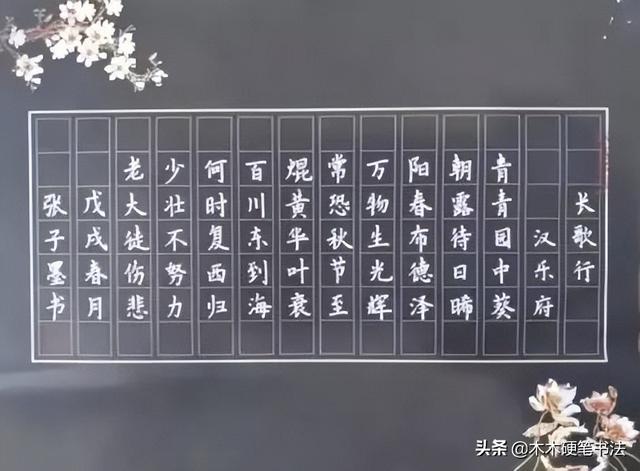 长歌行
汉乐府
青青园中葵
朝露待日晞
阳春布德泽
万物生光辉
常恐秋节至
焜黄华叶衰
百川东到海
何时复西归
少壮不努力
老大徒伤悲
戊戌春月
张子墨书
头条 @木木硬笔书法